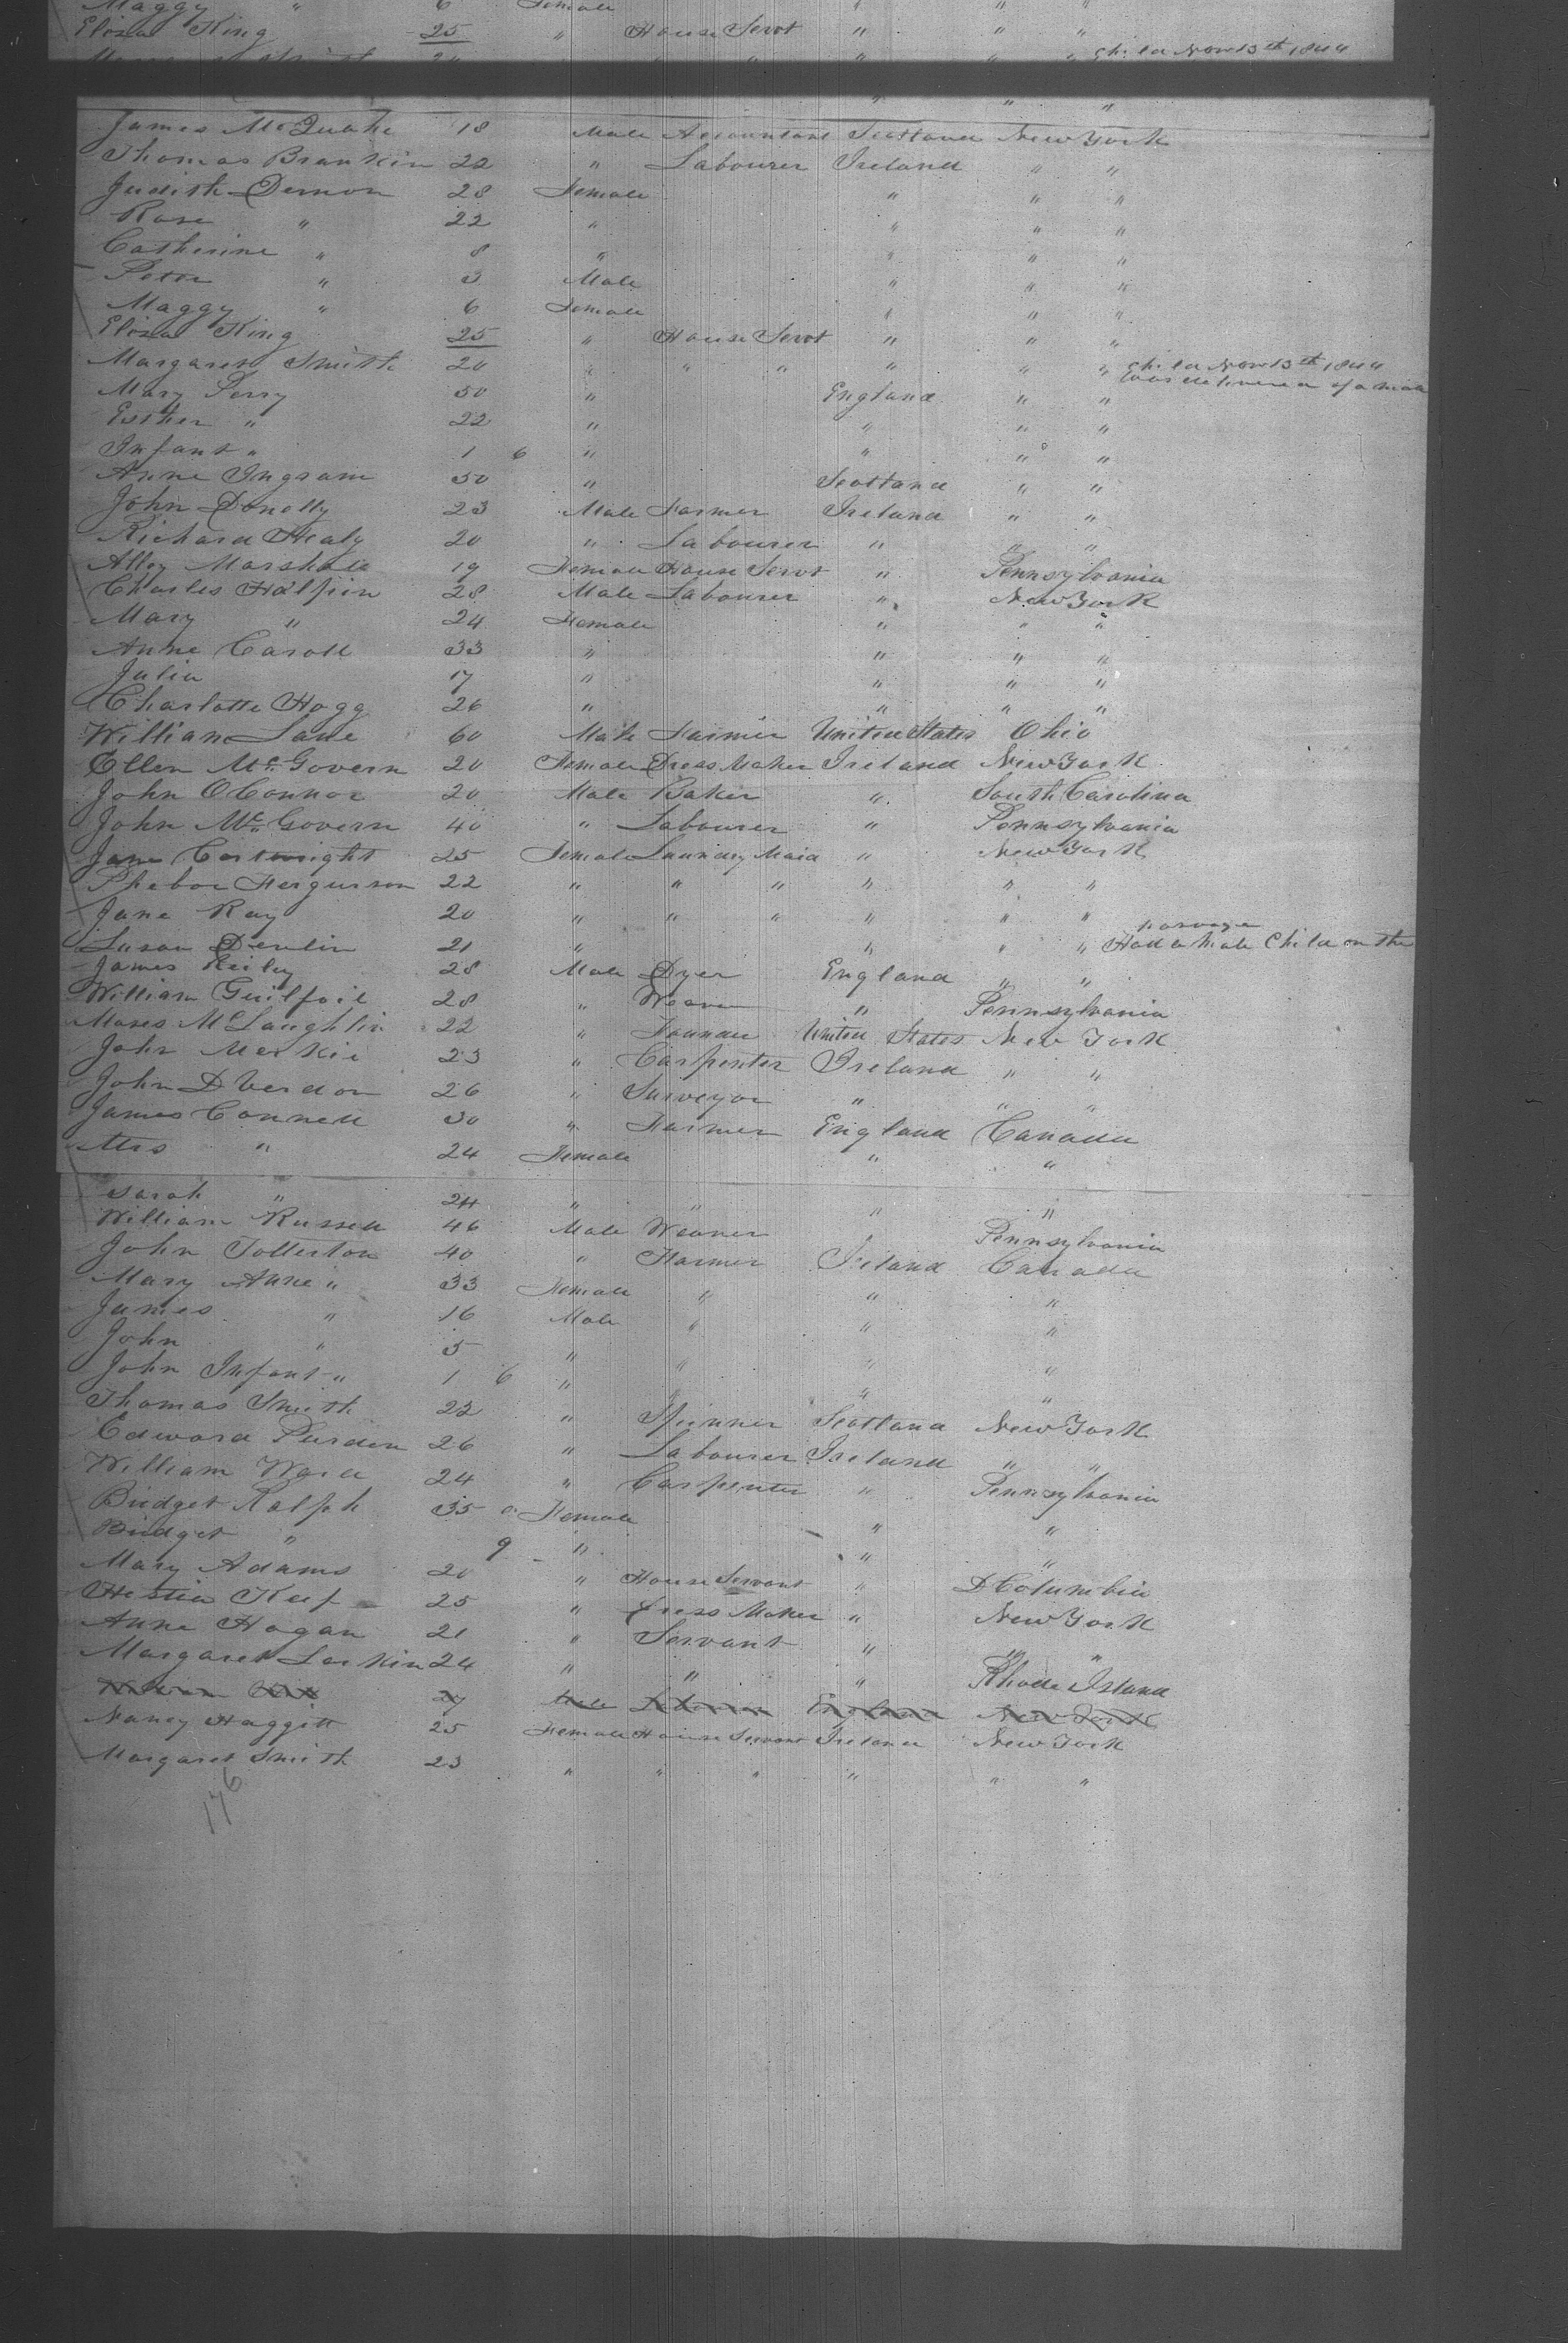 Maggy " 6 Female " " "
Eliza King 25 " House Servt " " "
Child Nov 13th 1844
" " "
James McQuake 18 Male Accountant Scotland New York
Thomas Brankin 22 " Labourer Ireland " "
Judith Dernon 28 Female " " "
Rose " 22 " " " "
Catherine " 8 " " " "
Peter " 3 Male " " "
Maggy " 6 Female " " "
Eliza King 25 " House Servt " " "
Margaret Smith 20 " " " " " " Child Nov 13th 1844
was delivered of a male
Mary Perry 50 " England " "
Esther " 22 " " " "
Infant " 1 6 " " " "
Anne Ingram 50 " Scotland " "
John Donelly 23 Male Farmer Ireland " "
Richard Healy 20 " Labourer " " "
Alley Marshall 19 Female House Servt " Pennsylvania
Charles Halpin 28 Male Labourer " New York
Mary " 24 Female " " "
Anne Caroll 33 " " " "
Julia 17 " " " "
Charlotte Hogg 26 " " " "
William Lane 60 Male Farmer United States Ohio
Ellen McGovern 20 Female Dress Maker Ireland New York
John OConnor 20 Male Baker " South Carolina
John McGovern 40 " Labourer " Pennsylvania
Jane Cartwright 25 Female Laundry Maid " New York
Pheboe Fergusson 22 " " " " " "
Jane Ray 20 " " " " " "
passage
Susan Devlin 21 " " " " Had a Male Child on the
James Reiley 28 Male Dyer England " "
William Guilfoil 28 " Weaver " Pennsylvania
Moses McLaughlin 22 " Founder United States New York
John Merkie 23 " Carpenter Ireland " "
John D Verdon 26 " Surveyor " " "
James Connell 30 " Farmer England Canada
Mrs " 24 Female " "
Sarah " 24 " " " "
William Russell 46 Male Weaver " Pennsylvania
John Tollerton 40 " Farmer Ireland Canada
Mary Anne " 33 Female " " "
James " 16 Male " " "
John " 5 " " " "
John Infant " 1 6 " " " "
Thomas Smith 22 " Spinner Scotland New York
Edward Purden 26 " Labourer Ireland " "
William Ward 24 " Carpenter " Pennsylvania
Bridget Ralph 35 Female " "
Bridget " 9 " " "
Mary Adams 20 " House Servant " D Columbia
Hestia Keef 25 " Dress Maker " New York
Anne Hogan 21 " Servant " " "
Margaret Larkin 24 " " " Rhode Island
27 Male Labourer England New York
Nancy Haggitt 25 Female House Servant Ireland New York
Margaret Smith 23 " " " " " "
176